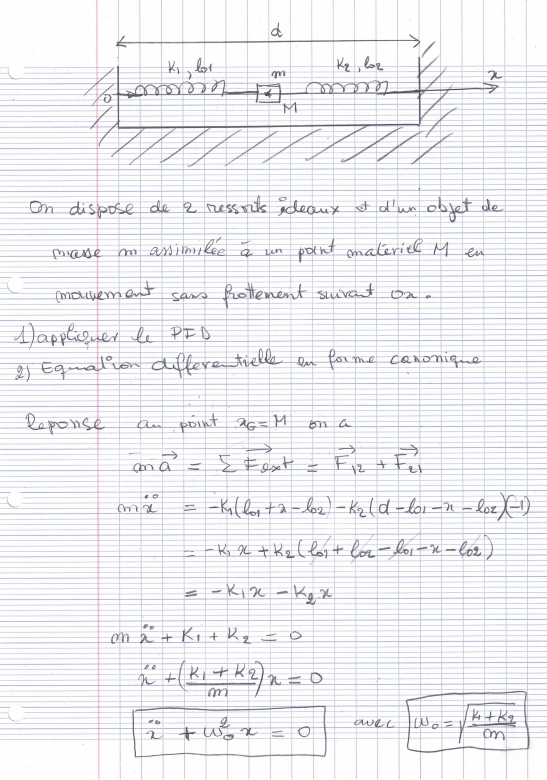 d
K₁, l₀₁ m K₂, l₀₂ x
0 M
On dispose de 2 ressorts ideaux et d'un objet de
masse m assimilée à un point matériel M en
mouvement sans frottement suivant ox.
1) appliquer le PFD
2) Equation differentielle en forme canonique
Reponse au point x_G = M on a
m a⃗ = Σ F⃗ext = F⃗₁₂ + F⃗₂₁
m ẍ = -K₁(l₀₁ + x - l₀₂) - K₂(d - l₀₁ - x - l₀₂)(-1)
= -K₁x + K₂(l₀₁ + l₀₂ - l₀₁ - x - l₀₂)
= -K₁x - K₂x
m ẍ + K₁ + K₂ = 0
ẍ + ((K₁ + K₂)/m)x = 0
ẍ + ω₀² x = 0 avec ω₀ = √((K₁ + K₂)/m)